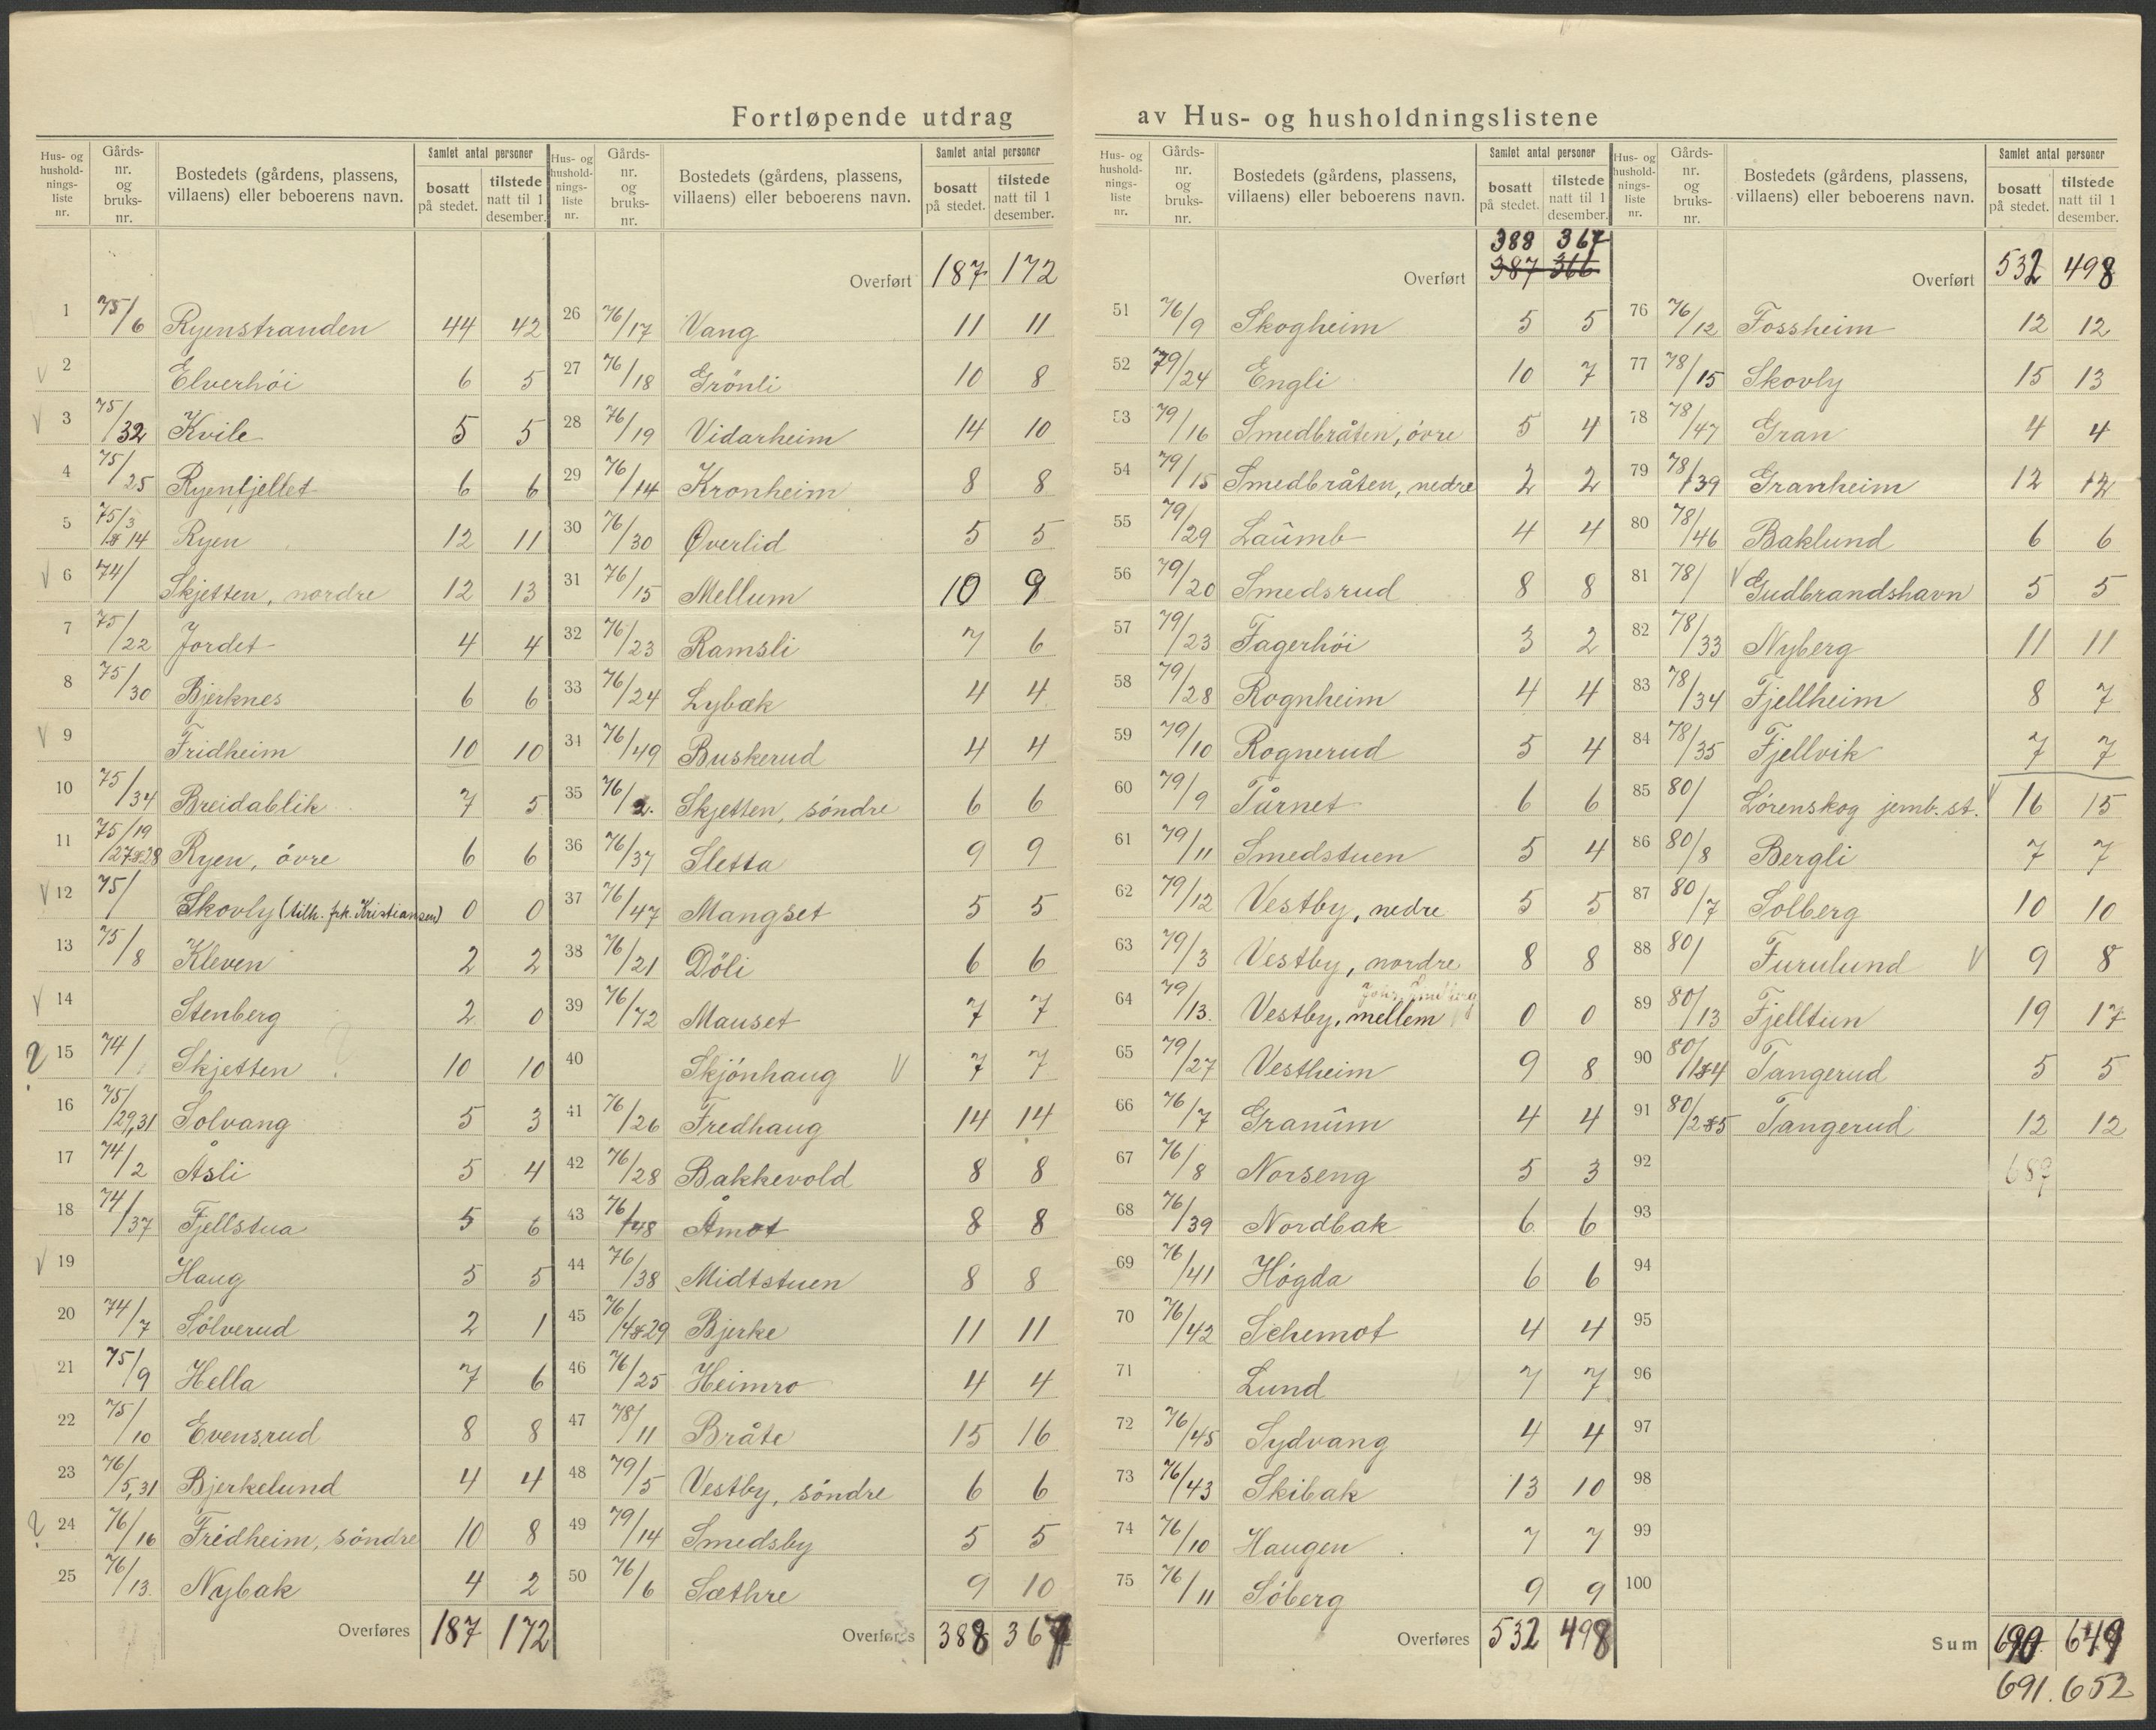 Fortløpende utdrag av Hus- og husholdningslistene
Hus- og husholdnings- liste nr. | Gårds- nr. og bruks- nr. | Bostedets (gårdens, plassens, villaens) eller beboerens navn. | Samlet antal personer | bosatt på stedet. | tilstede natt til 1 desember.
1 75/6 Ryenstranden 44 42
2 Elverhöi 6 5
3 75/32 Kvile 5 5
4 75/25 Ryenfjellet 6 6
5 75/3 & 14 Ryen 12 11
6 74/ Skjetten, nordre 12 13
7 75/22 Jordet 4 4
8 75/30 Bjerknes 6 6
9 Fridheim 10 10
10 75/34 Breidablik 7 5
11 75/19 /27&28 Ryen, övre 6 6
12 75/ Skovly (tilh. frk. Kristiansen) 0 0
13 75/8 Kleven 2 2
14 Stenberg 2 0
15 74/ Skjetten 10 10
16 75/29,31 Solvang 5 3
17 74/2 Åsli 5 4
18 74/37 Fjellstua 5 6
19 Haug 5 5
20 74/7 Sölverud 2 1
21 75/9 Hella 7 6
22 75/10 Evensrud 8 8
23 76/5,31 Bjerkelund 4 4
24 76/16 Fridheim, söndre 10 8
25 76/13 Nybak 4 2
Overføres 187 172
Hus- og husholdnings- liste nr. | Gårds- nr. og bruks- nr. | Bostedets (gårdens, plassens, villaens) eller beboerens navn. | Samlet antal personer | bosatt på stedet. | tilstede natt til 1 desember.
Overført 187 172
26 76/17 Vang 11 11
27 76/18 Grönli 10 8
28 76/19 Vidarheim 14 10
29 76/14 Kronheim 8 8
30 76/30 Øverlid 5 5
31 76/15 Mellum 10 9
32 76/23 Ramsli 7 6
33 76/24 Lybæk 4 4
34 76/49 Buskerud 4 4
35 76/2. Skjetten, söndre 6 6
36 76/37 Sletta 9 9
37 76/47 Mangset 5 5
38 76/21 Döli 6 6
39 76/72 Mauset 7 7
40 Skjönhaug 7 7
41 76/26 Fredhaug 14 14
42 76/28 Bakkevold 8 8
43 76/48 Åmot 8 8
44 76/38 Midtstuen 8 8
45 76/4&29 Bjerke 11 11
46 76/25 Heimro 4 4
47 78/11 Bråte 15 16
48 79/5 Vestby, söndre 6 6
49 79/14 Smedsby 5 5
50 76/6 Sæthre 9 10
Overføres 388 367
Hus- og husholdnings- liste nr. | Gårds- nr. og bruks- nr. | Bostedets (gårdens, plassens, villaens) eller beboerens navn. | Samlet antal personer | bosatt på stedet. | tilstede natt til 1 desember.
388 367
Overført 387 366
51 76/9 Skogheim 5 5
52 79/24 Engli 10 7
53 79/16 Smedbråten, övre 5 4
54 79/15 Smedbråten, nedre 2 2
55 79/29 Laumb 4 4
56 79/20 Smedsrud 8 8
57 79/23 Fagerhöi 3 2
58 79/28 Rognheim 4 4
59 79/10 Rognerud 5 4
60 79/9 Tårnet 6 6
61 79/11 Smedstuen 5 4
62 79/12 Vestby, nedre 5 5
63 79/3 Vestby, nordre 8 8
64 79/13. Vestby, mellem 0 0
65 79/27 Vestheim 9 8
66 76/7 Granum 4 4
67 76/8 Norseng 5 3
68 76/39 Nordbak 6 6
69 76/41 Högda 6 6
70 76/42 Schemot 4 4
71 Lund 7 7
72 76/45 Sydvang 4 4
73 76/43 Skibak 13 10
74 76/10 Haugen 7 7
75 76/11 Söberg 9 9
Overføres 532 498
Hus- og husholdnings- liste nr. | Gårds- nr. og bruks- nr. | Bostedets (gårdens, plassens, villaens) eller beboerens navn. | Samlet antal personer | bosatt på stedet. | tilstede natt til 1 desember.
Overført 532 498
76 76/12 Fossheim 12 12
77 78/15 Skovly 15 13
78 78/47 Gran 4 4
79 78/39 Granheim 12 12
80 78/46 Baklund 6 6
81 78/ Gudbrandshavn 5 5
82 78/33 Nyberg 11 11
83 78/34 Fjellheim 8 7
84 78/35 Fjellvik 7 7
85 80/ Lörenskog jernb. st. 16 15
86 80/8 Bergli 7 7
87 80/7 Solberg 10 10
88 80/ Furulund 9 8
89 80/13 Fjelltun 19 17
90 80/1&4 Tangerud 5 5
91 80/2&5 Tangerud 12 12
92 689
93
94
95
96
97
98
99
100
Sum 690 649
691. 652